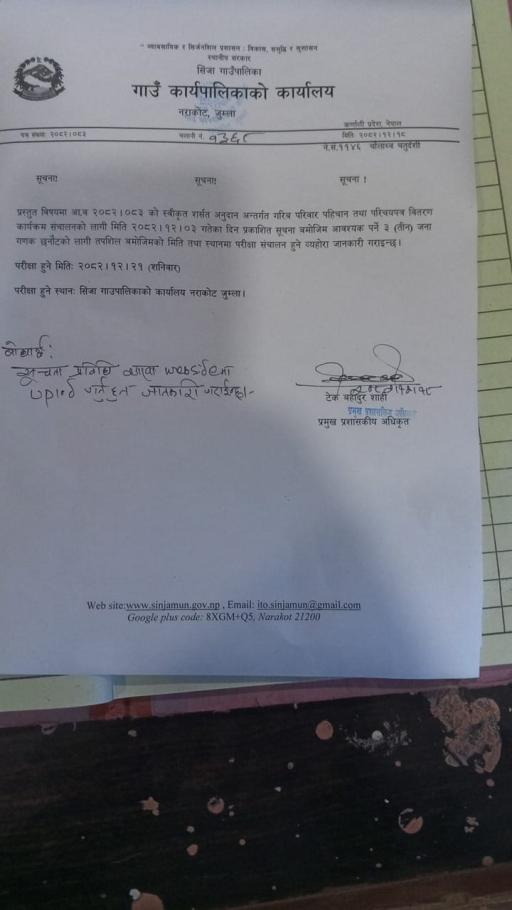 " व्यावसायिक र सिर्जनशिल प्रशासन : विकास, समृद्धि र सुशासन
स्थानीय सरकार
सिंजा गाउँपालिका
गाउँ कार्यपालिकाको कार्यालय
नराकोट, जुम्ला
कर्णाली प्रदेश, नेपाल
पत्र संख्याः २०८२।०८३
चलानी नं. १३६८
मितिः २०८२।१२।१८
ने.स.११४६ चौलाथ्व चतुर्दशी
सूचना!
सूचना!
सूचना !
प्रस्तुत विषयमा आ.व २०८२।०८३ को स्वीकृत शर्सत अनुदान अन्तर्गत गरिव परिवार पहिचान तथा परिचयपत्र वितरण
कार्यक्रम संचालनको लागी मिति २०८२।१२।०३ गतेका दिन प्रकाशित सूचना बमोजिम आवश्यक पर्ने ३ (तीन) जना
गणक छनौटको लागी तपशिल बमोजिमको मिति तथा स्थानमा परीक्षा संचालन हुने व्यहोरा जानकारी गराइन्छ।
परीक्षा हुने मितिः २०८२।१२।२१ (शनिवार)
परीक्षा हुने स्थानः सिंजा गाउपालिकाको कार्यालय नराकोट जुम्ला।
बोधार्थ:
सूचना प्रविधि शाखा websideमा
upload गर्नु हुन जानकारी गराईन्छ।-
टेक बहादुर शाही
प्रमुख प्रशासकीय अधिकृत
प्रमुख प्रशासकीय अधिकृत
Web site:www.sinjamun.gov.np , Email: ito.sinjamun@gmail.com
Google plus code: 8XGM+Q5, Narakot 21200